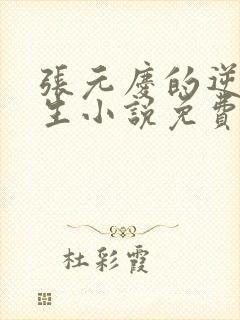 張元慶的逆
生小說免費
杜彩霞